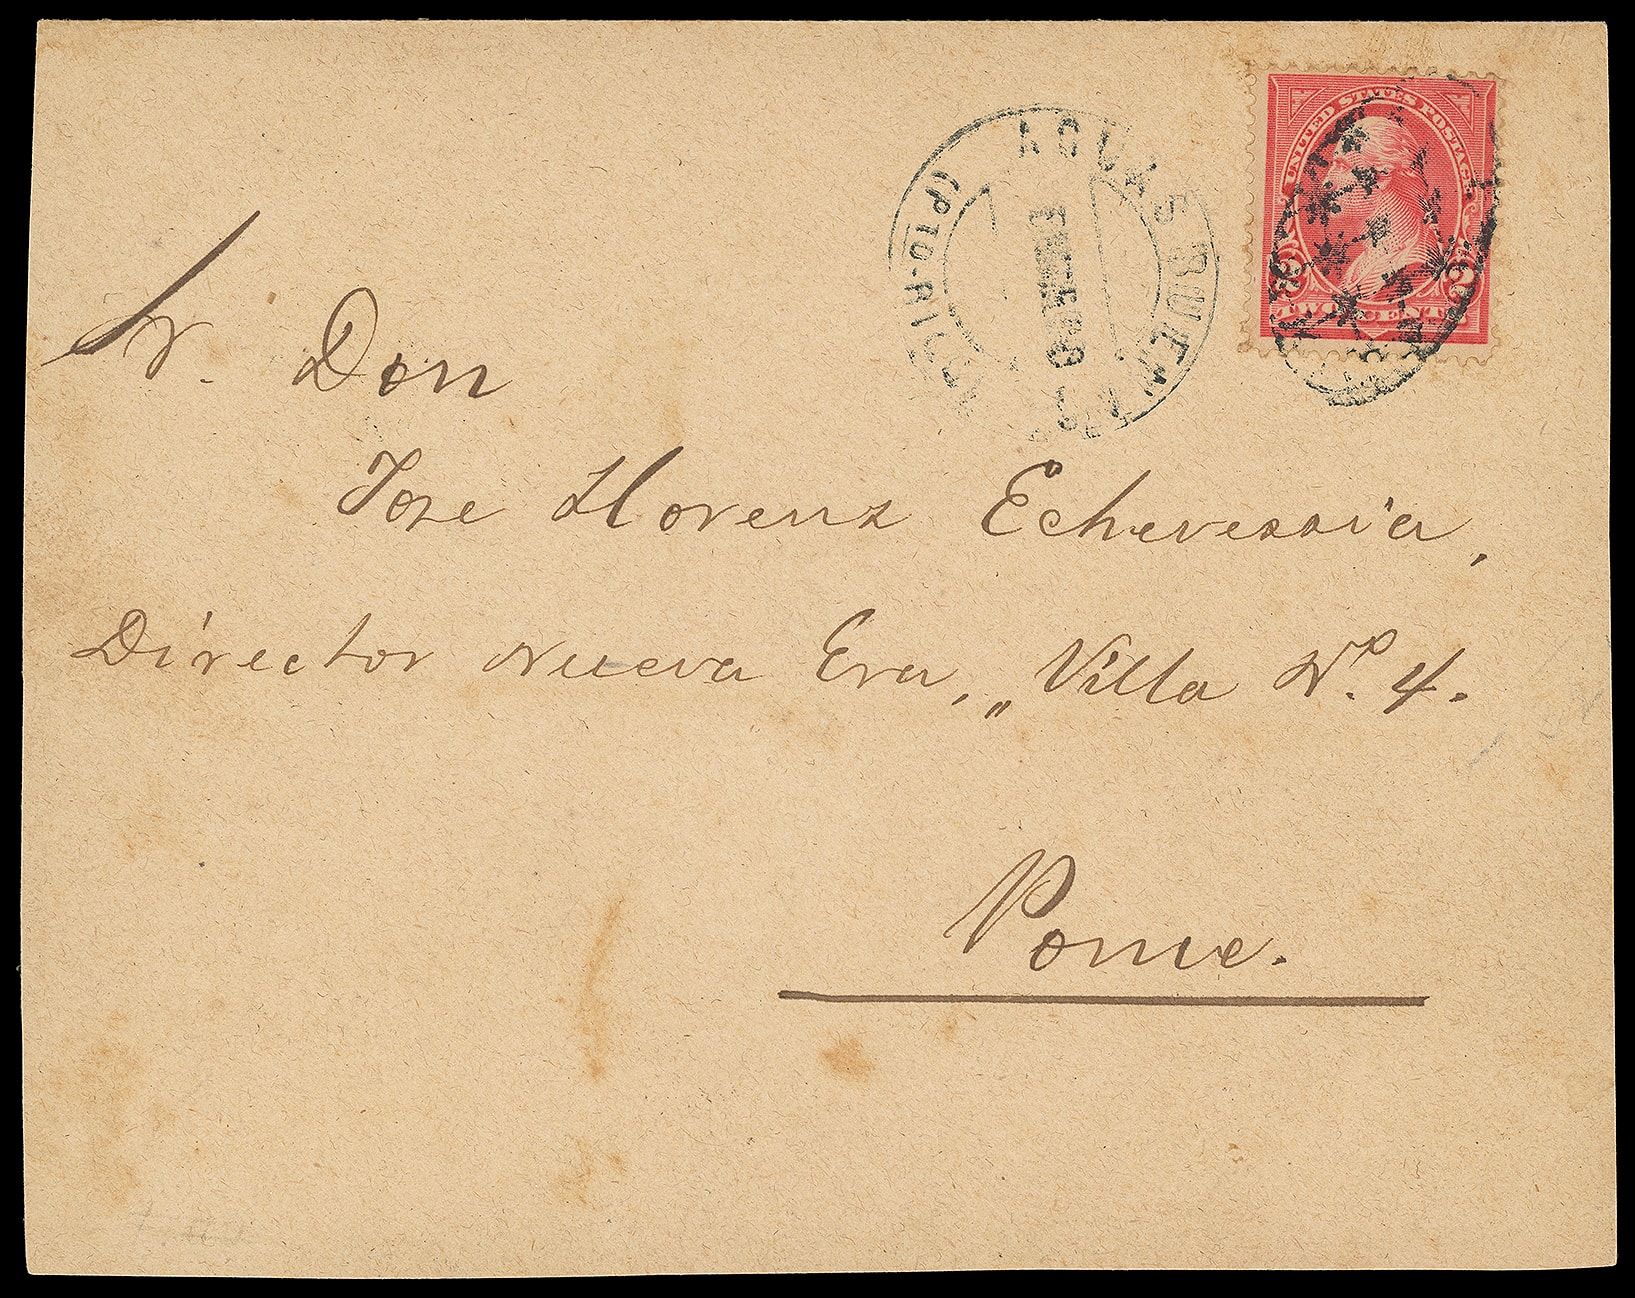 AGUAS BUENAS
(PTO-RICO)
UNITED STATES POSTAGE
2 2
TWO CENTS
Sr. Don
Jose Llorenz Echeverria,
Director Nueva Era, „ Villa Nº. 4.
Ponce.